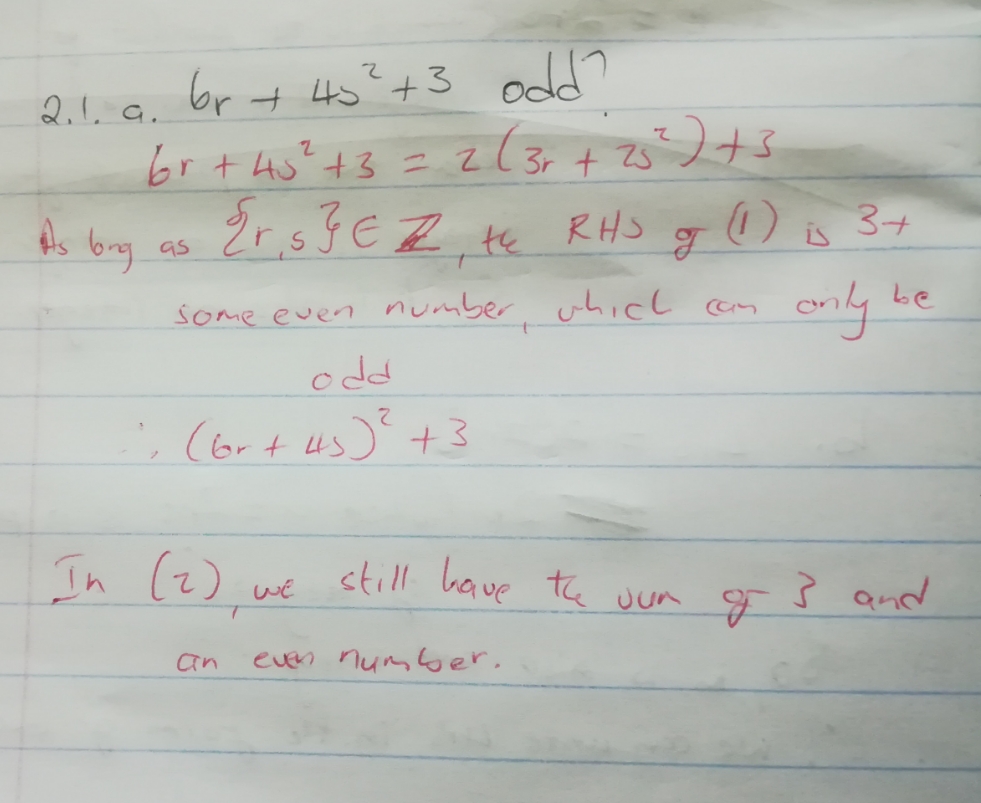 2.1. a. 6r + 4s² + 3 odd?
6r + 4s² + 3 = 2(3r + 2s²) + 3
As long as {r, s} ∈ ℤ, the RHS of (1) is 3+
some even number, which can only be
odd
∴ (6r + 4s)² + 3
In (2), we still have the sum of 3 and
an even number.